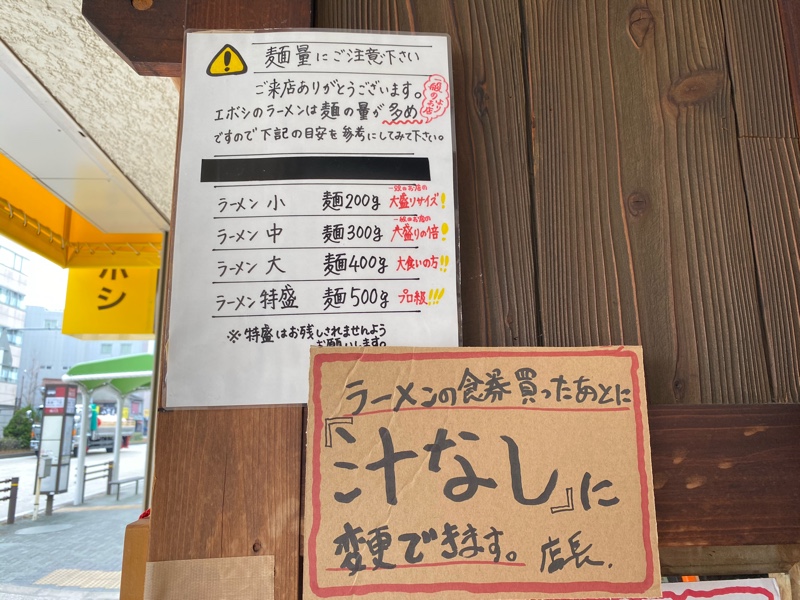 麺量にご注意下さい
ご来店ありがとうございます。
エボシのラーメンは麺の量が多め
一般のお店より
ですので下記の目安を参考にしてみて下さい。
ラーメン 小 麺200g 一般のお店の大盛りサイズ!
ラーメン 中 麺300g 一般のお店の大盛りの倍!
ラーメン 大 麺400g 大食いの方!!
ラーメン 特盛 麺500g プロ級!!!
※特盛はお残しされませんよう
お願いします。
ボシ
ラーメンの食券買ったあとに
『汁なし』に
変更できます。 店長.